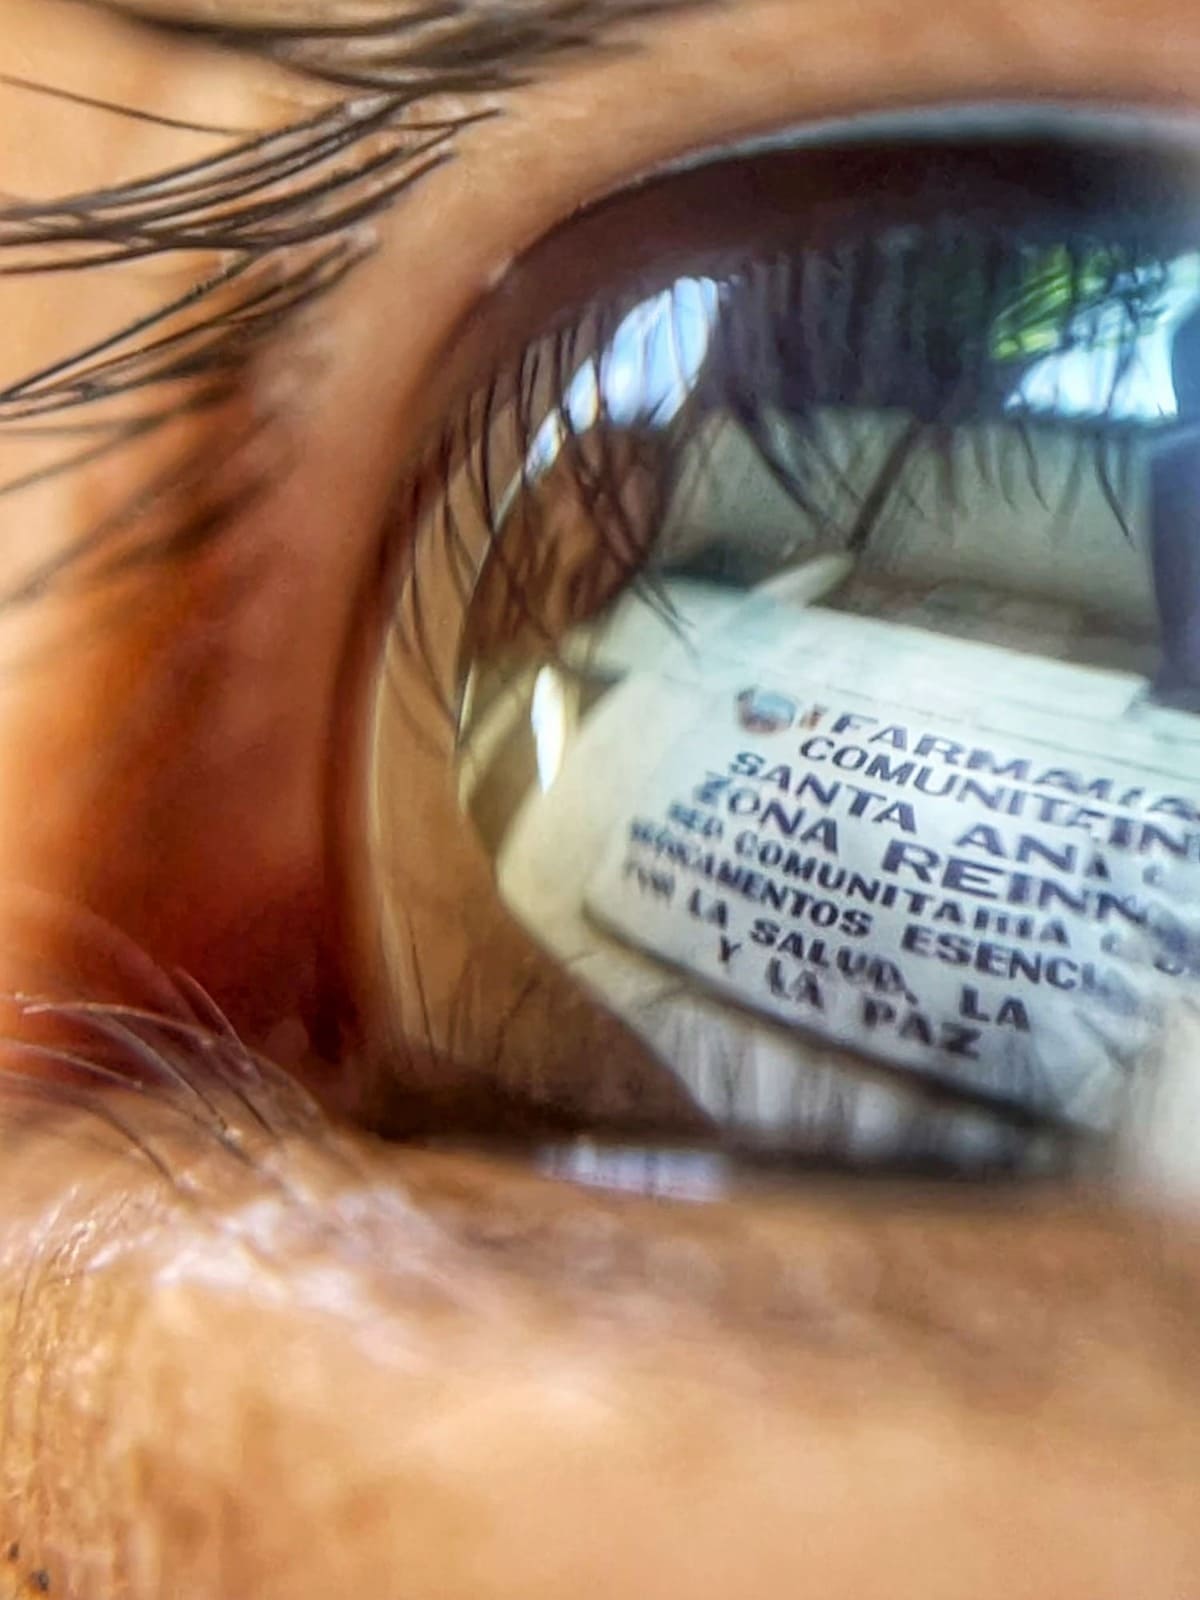 FARMACIA
COMUNITE IN
SANTA ANA C
ZONA REINN
RED COMUNITARIA
MEDICAMENTOS ESENCI
POR LA SALUD, LA
Y LA PAZ